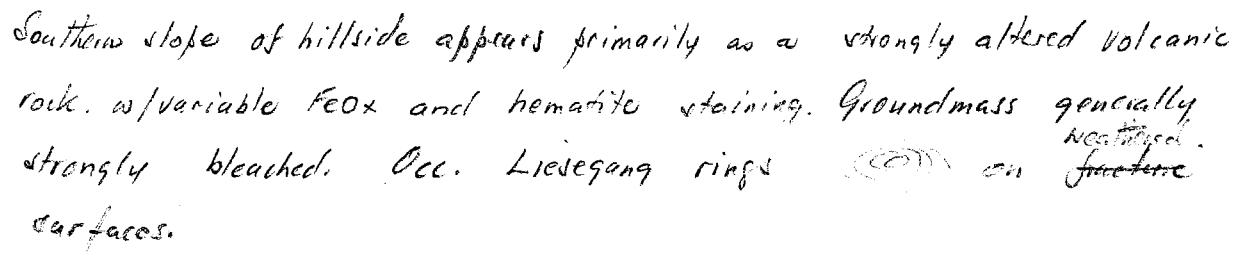 Southern slope of hillside appears primarily as a strongly altered volcanic
rock. w/variable FeOx and hematite staining. Groundmass generally
weathered.
strongly bleached. Occ. Liesegang rings on fracture
surfaces.